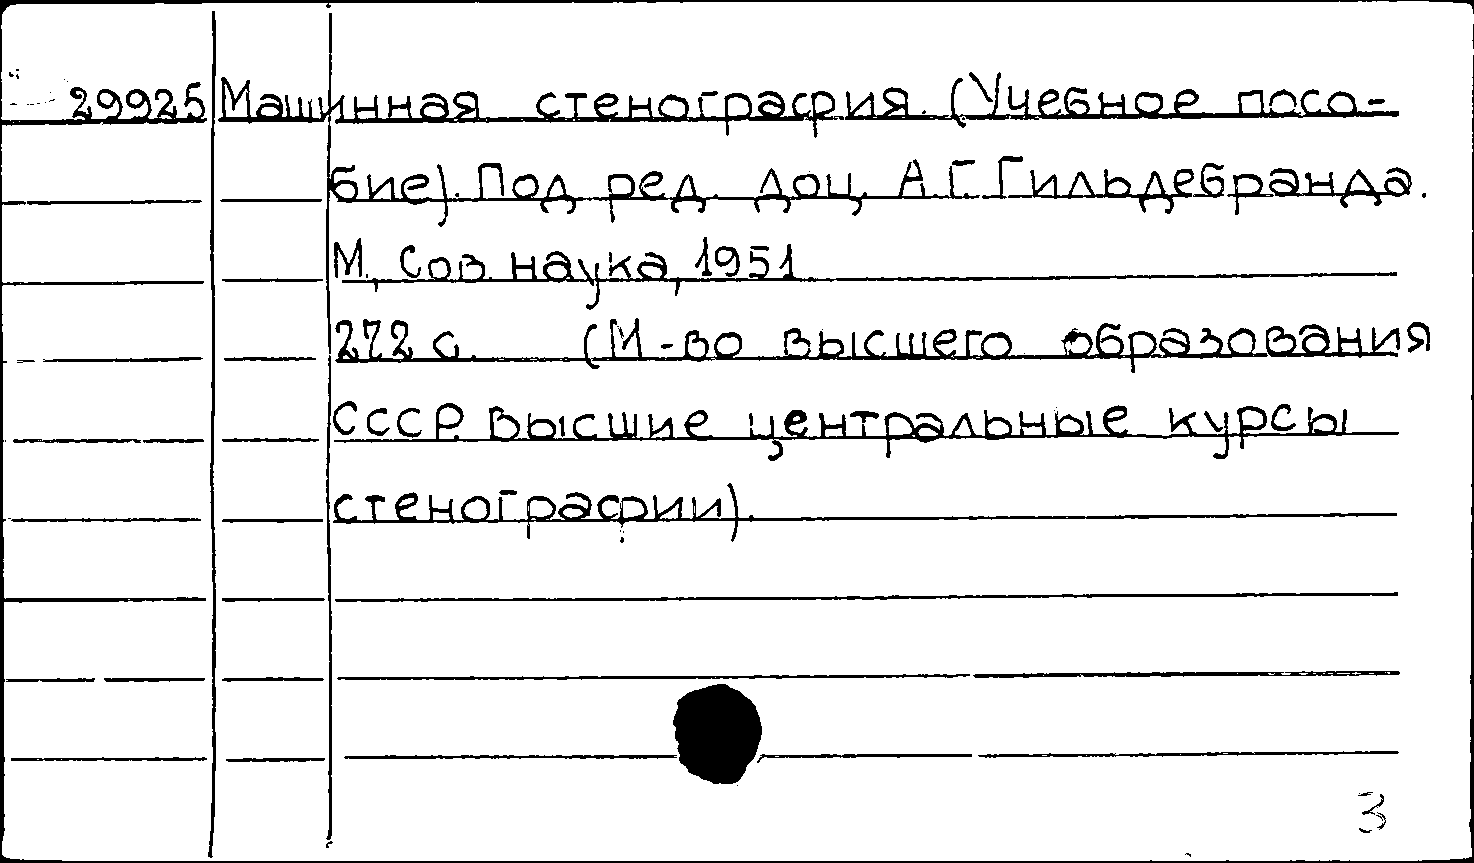 29925 Машинная стенография. (Учебное посо-
бие). Под ред. доц. А.Г. Гильдебранда.
М., Сов. наука, 1951.
272 с. (М-во высшего образования
СССР. Высшие центральные курсы
стенографии).
3